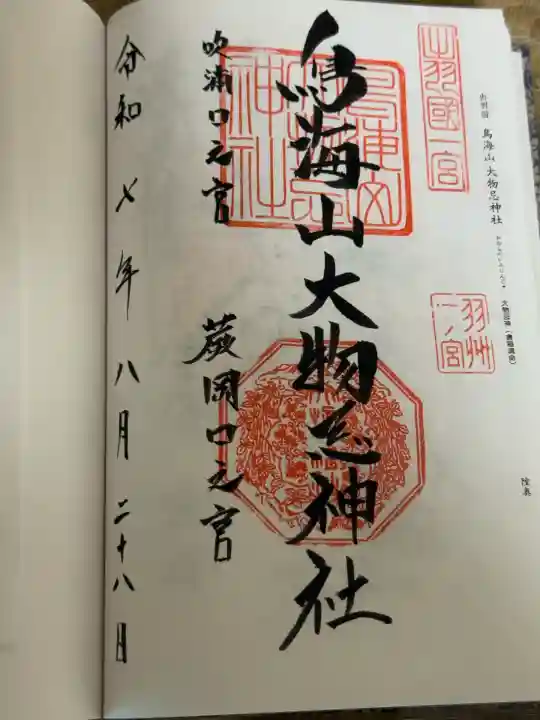 出羽国 鳥海山大物忌神社
大物忌神
陸奥
出羽國一宮
羽州一ノ宮
鳥海山大物忌神社
鳥海山大物忌神社
吹浦口之宮 蕨岡口之宮
令和七年八月二十八日